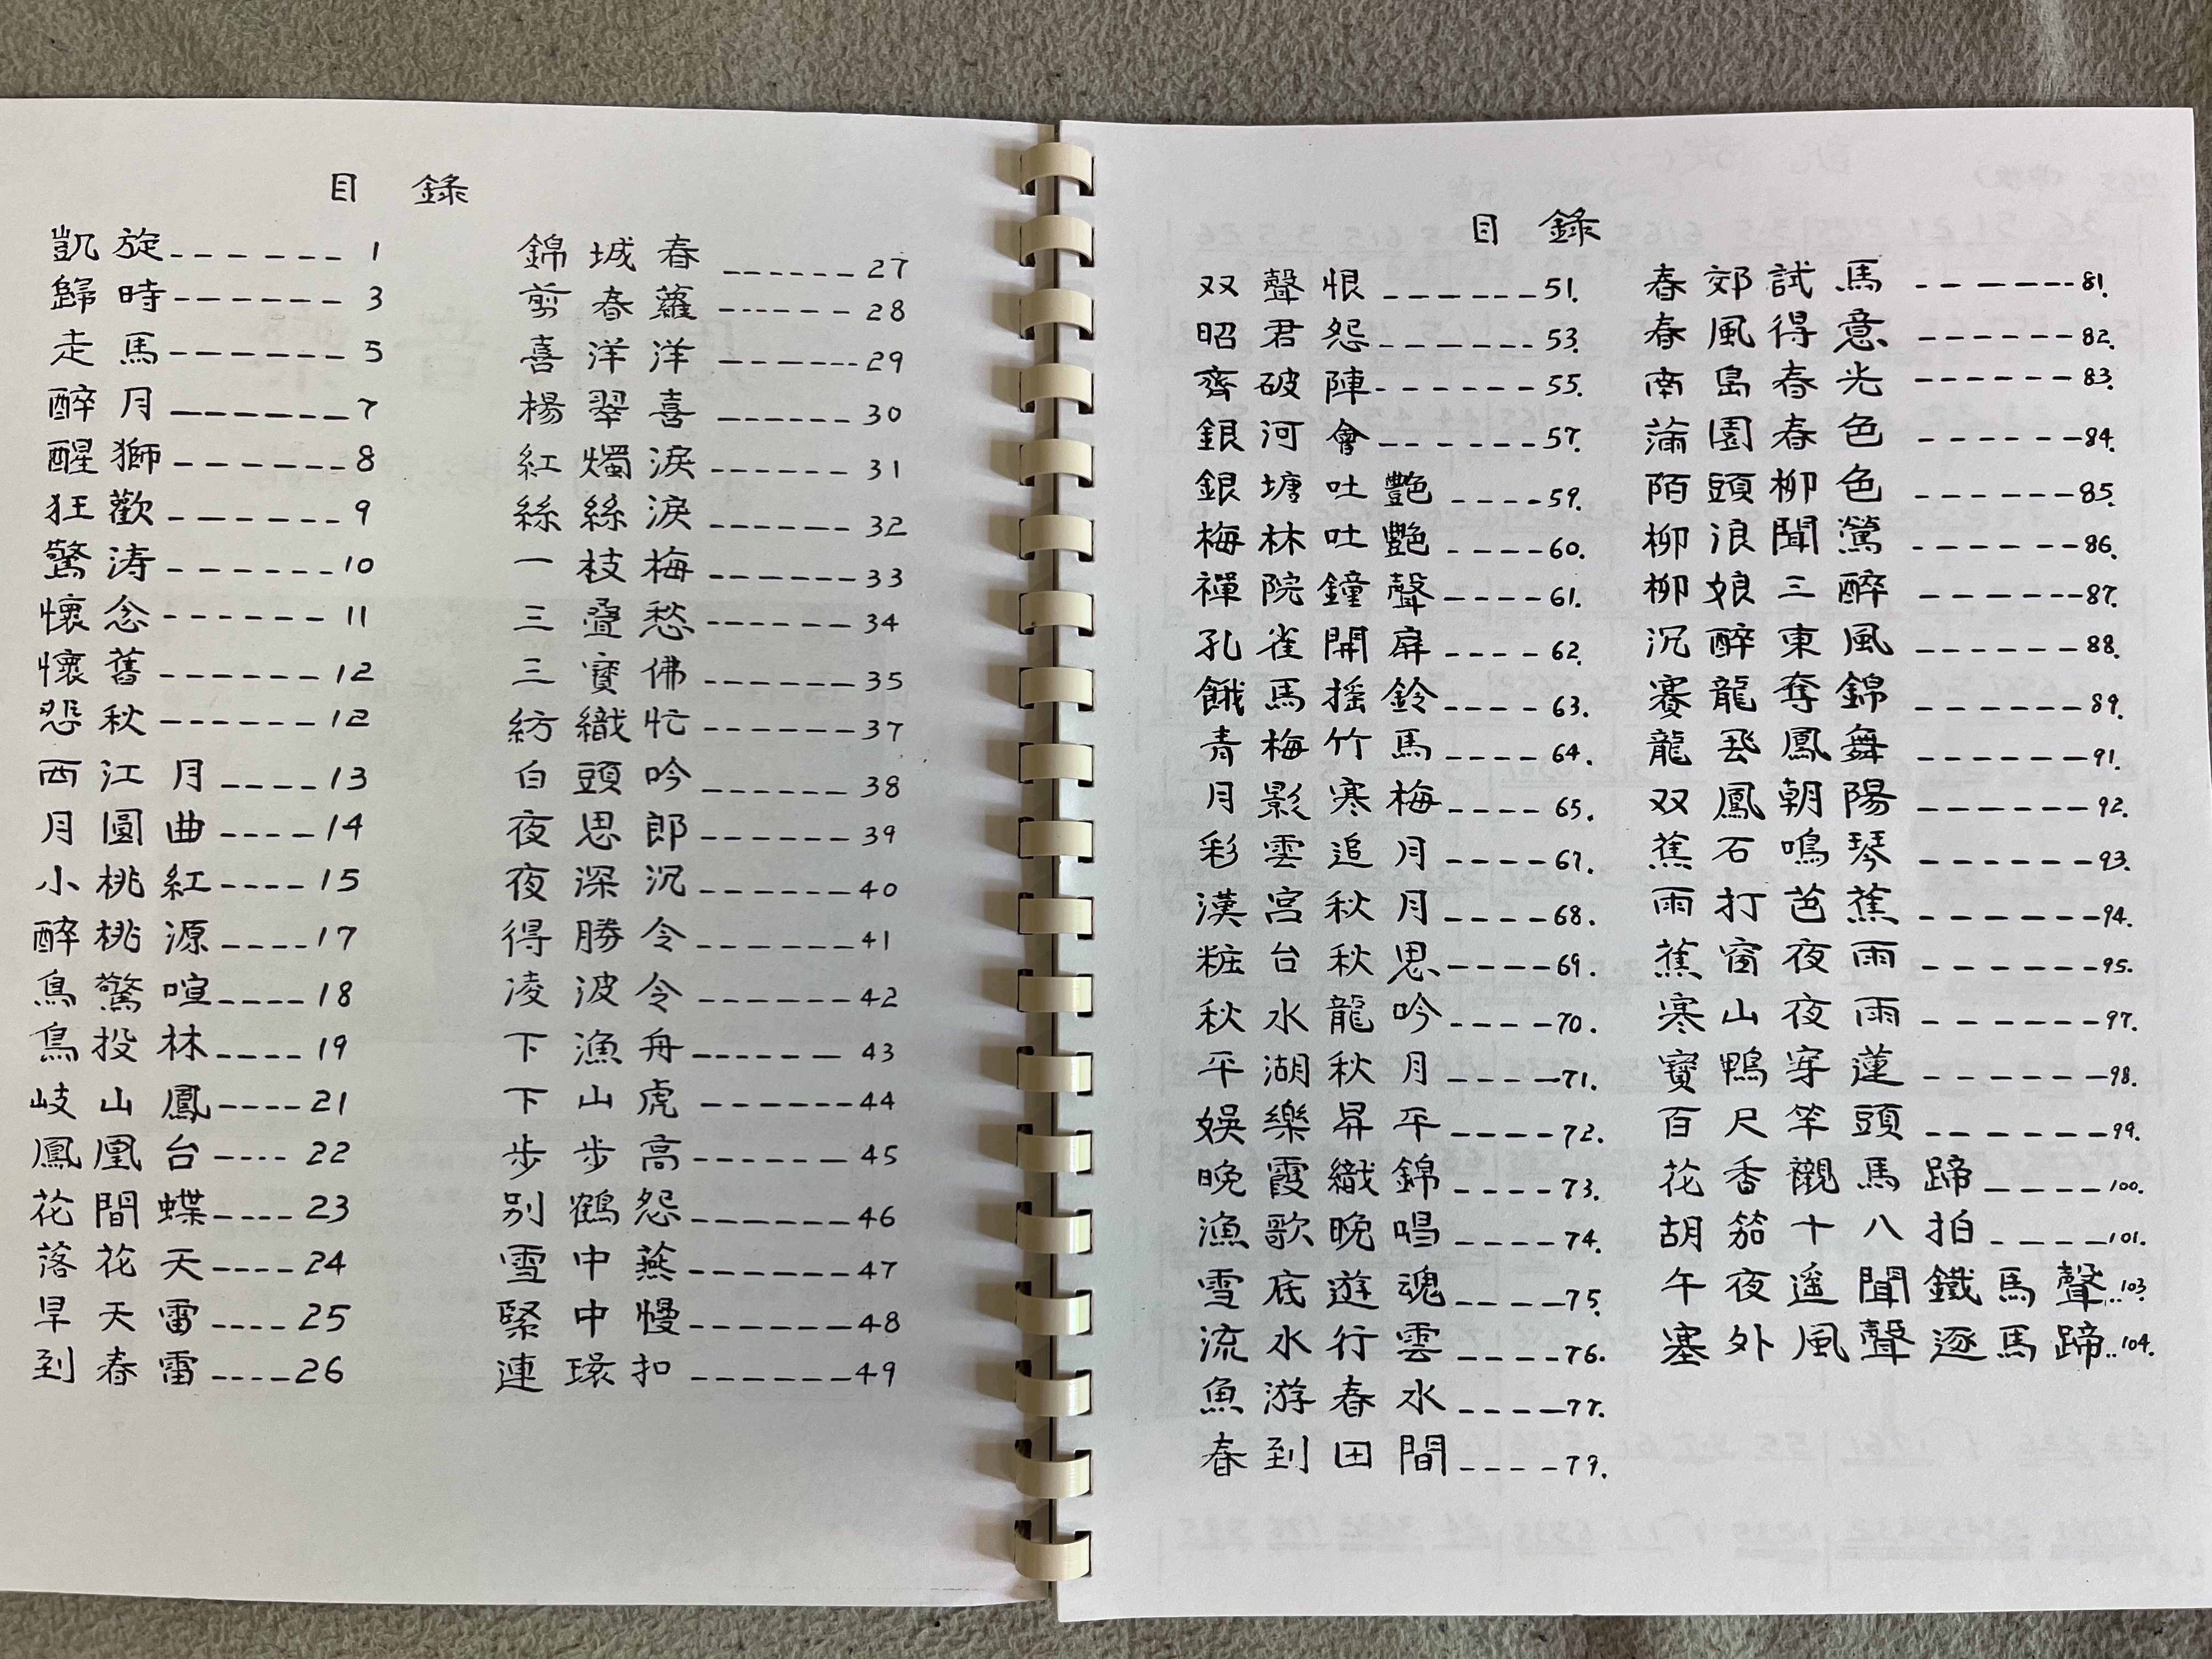 目 錄
凱旋------ 1
歸時------ 3
走馬------ 5
醉月------7
醒獅------8
狂歡------9
驚涛------10
懷念------ 11
懷舊------12
怨秋------12
西江月----13
月圓曲----14
小桃紅----15
醉桃源----17
鳥驚喧----18
鳥投林----19
岐山鳳----21
鳳凰台---- 22
花間蝶----23
落花天----24
旱天雷----25
到春雷----26
錦城春 ------27
剪春蘿------28
喜洋洋------29
楊翠喜------30
紅燭淚------ 31
絲絲淚------32
一枝梅------33
三疊愁------34
三寶佛------35
紡織忙------37
白頭吟------38
夜思郎------39
夜深沉------40
得勝令------41
凌波令------42
下漁舟------ 43
下山虎 ------44
步步高------45
别鶴怨------46
雪中燕------47
緊中慢------48
連環扣 ------49
目 錄
双聲恨------51.
昭君怨------53.
齊破陣------55.
銀河會------57.
銀塘吐艷----59.
梅林吐艷----60.
禪院鐘聲----61.
孔雀開屏----62.
餓馬摇鈴----63.
青梅竹馬----64.
月影寒梅----65.
彩雲追月----67.
漢宮秋月----68.
粧台秋思----69.
秋水龍吟----70.
平湖秋月----71.
娛樂昇平----72.
晚霞織錦----73.
漁歌晚唱----74.
雪底遊魂----75.
流水行雲----76.
魚游春水----77.
春到田間----79.
春郊試馬 ------81.
春風得意 ------82.
南島春光 ------83.
蒲園春色 ------84.
陌頭柳色 ------85.
柳浪聞鶯 ------86.
柳娘三醉 ------87.
沉醉東風 ------88.
賽龍奪錦 ------89.
龍飛鳳舞 ------91.
双鳳朝陽 ------92.
蕉石鳴琴 ------93.
雨打芭蕉 ------94.
蕉窗夜雨 ------95.
寒山夜雨 ------97.
寶鴨穿蓮 ------98.
百尺竿頭 ------99.
花香襯馬蹄----100.
胡笳十八拍----101.
午夜遥聞鐵馬聲..103.
塞外風聲逐馬蹄..104.